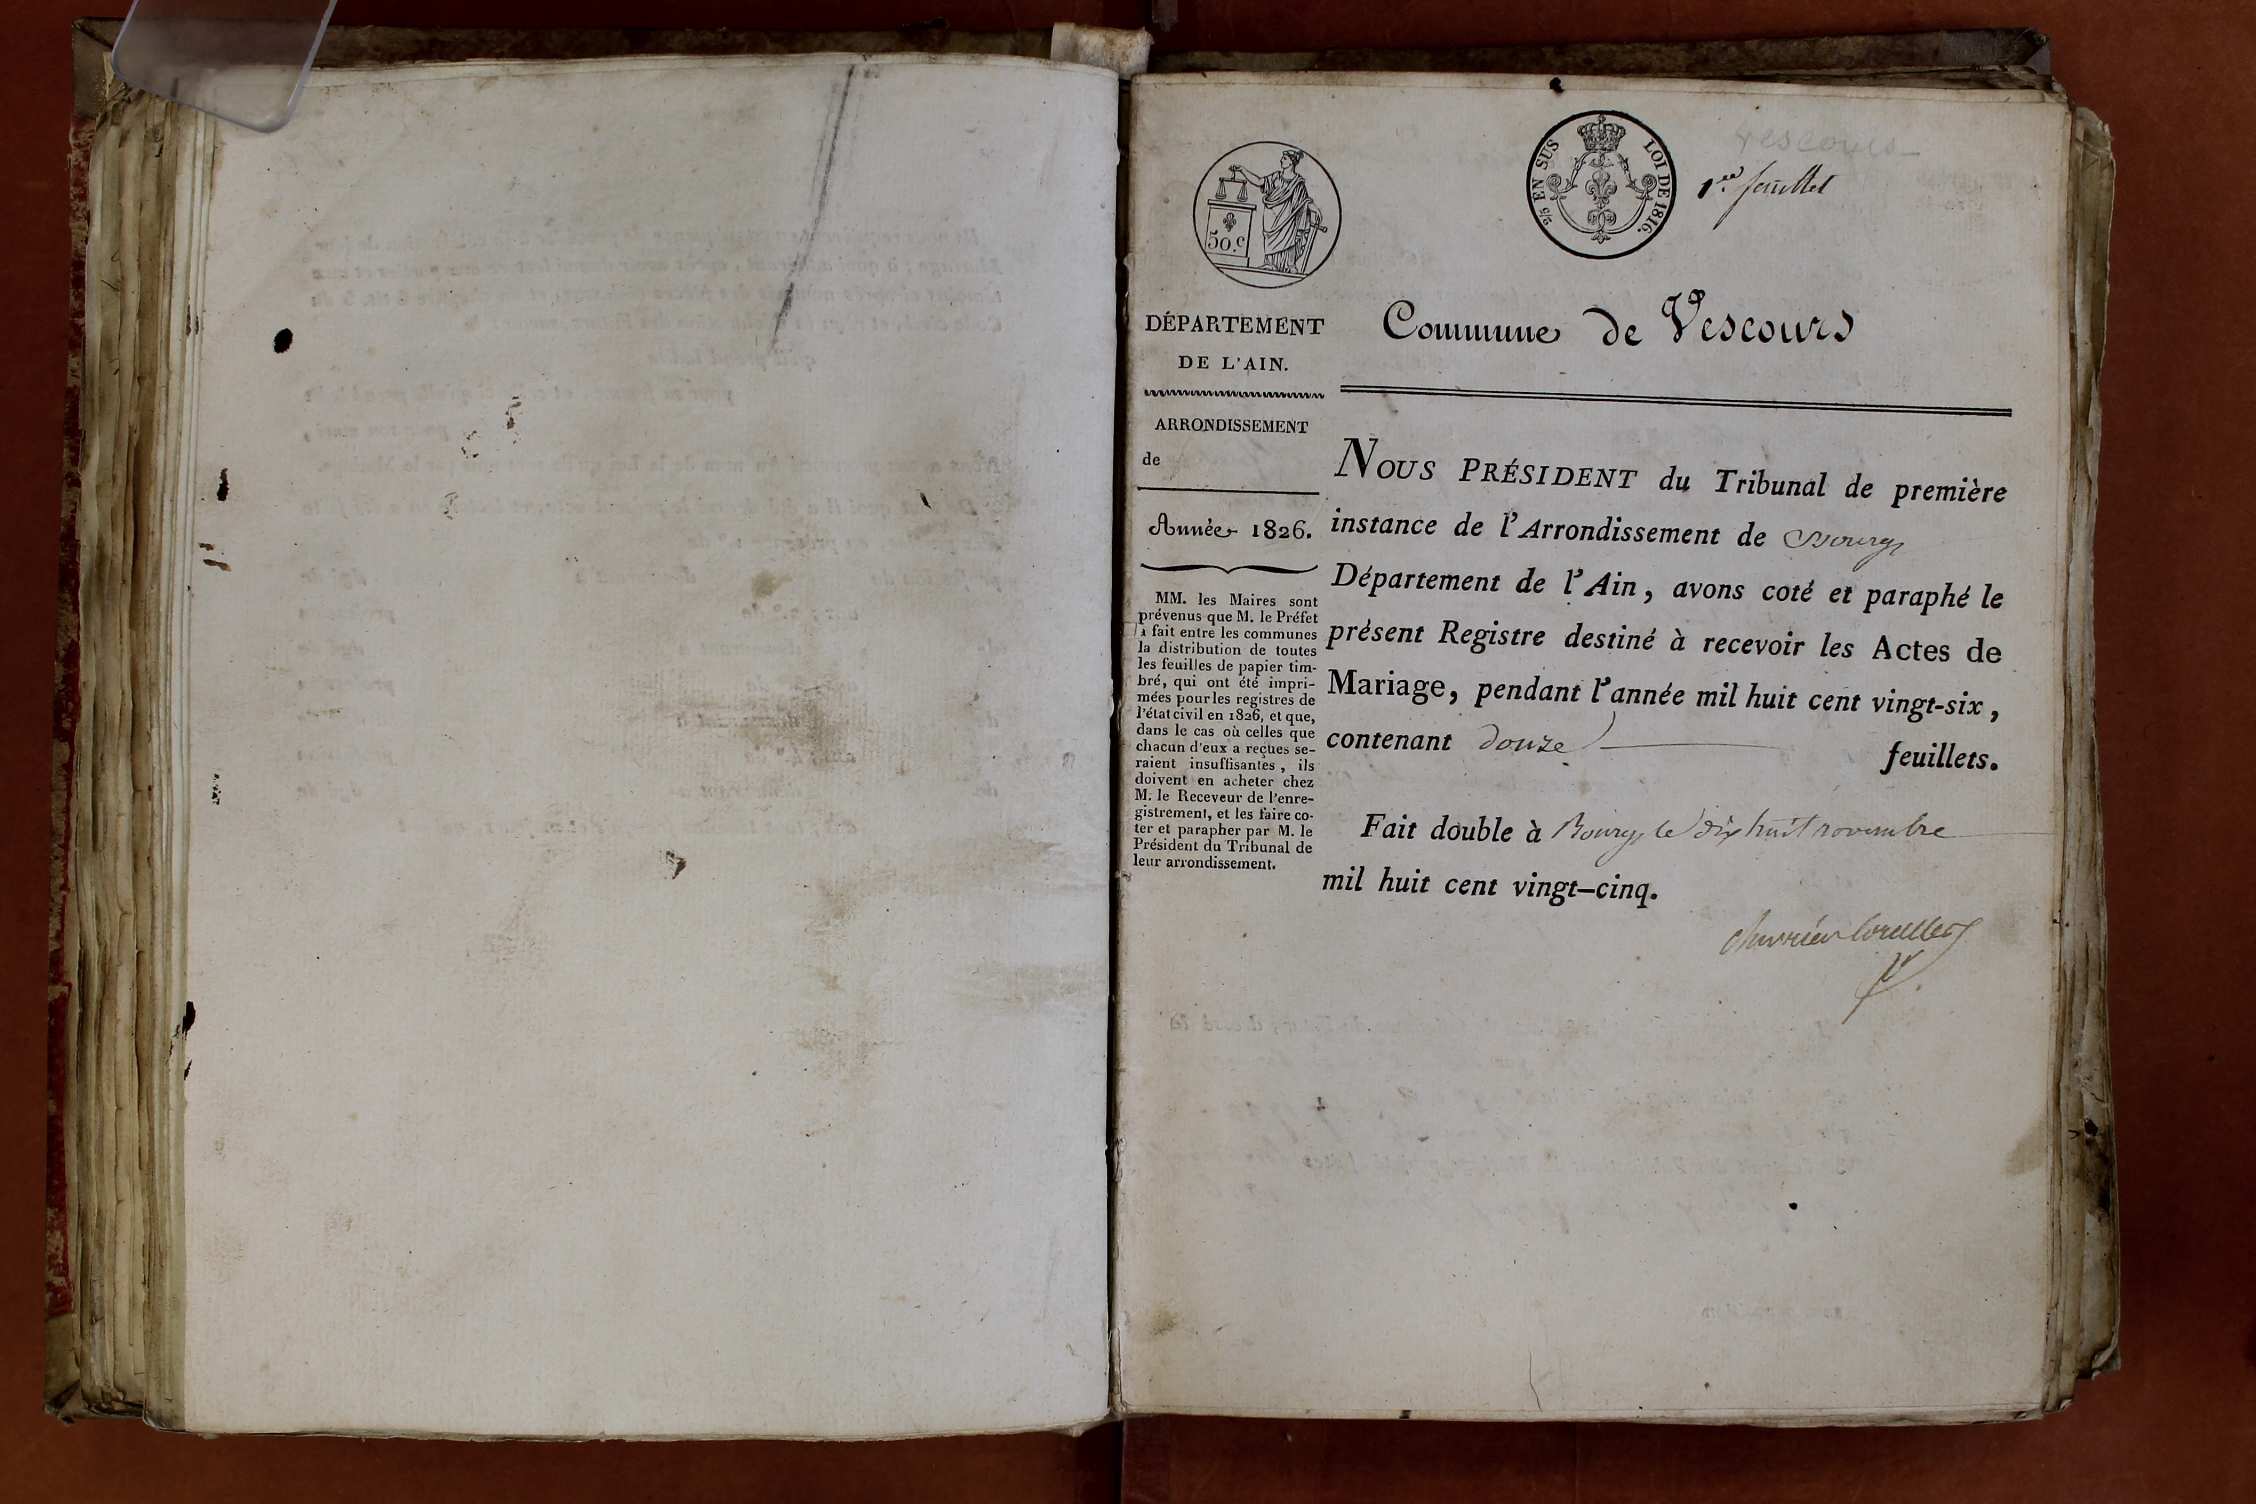 Vescours
1er feuillet
50.c
EN SUS
LOI DE 1816.
DÉPARTEMENT
DE L'AIN.
ARRONDISSEMENT
de
Année 1826.
MM. les Maires sont
prévenus que M. le Préfet
a fait entre les communes
la distribution de toutes
les feuilles de papier tim-
bré, qui ont été impri-
mées pour les registres de
l'état civil en 1826, et que,
dans le cas où celles que
chacun d'eux a reçues se-
raient insuffisantes, ils
doivent en acheter chez
M. le Receveur de l'enre-
gistrement, et les faire co-
ter et parapher par M. le
Président du Tribunal de
leur arrondissement.
Commune de Vescours
NOUS PRÉSIDENT du Tribunal de première
instance de l'Arrondissement de Bourg
Département de l'Ain, avons coté et paraphé le
présent Registre destiné à recevoir les Actes de
Mariage, pendant l'année mil huit cent vingt-six,
contenant douze feuillets.
Fait double à Bourg, le dix huit novembre
mil huit cent vingt-cinq.